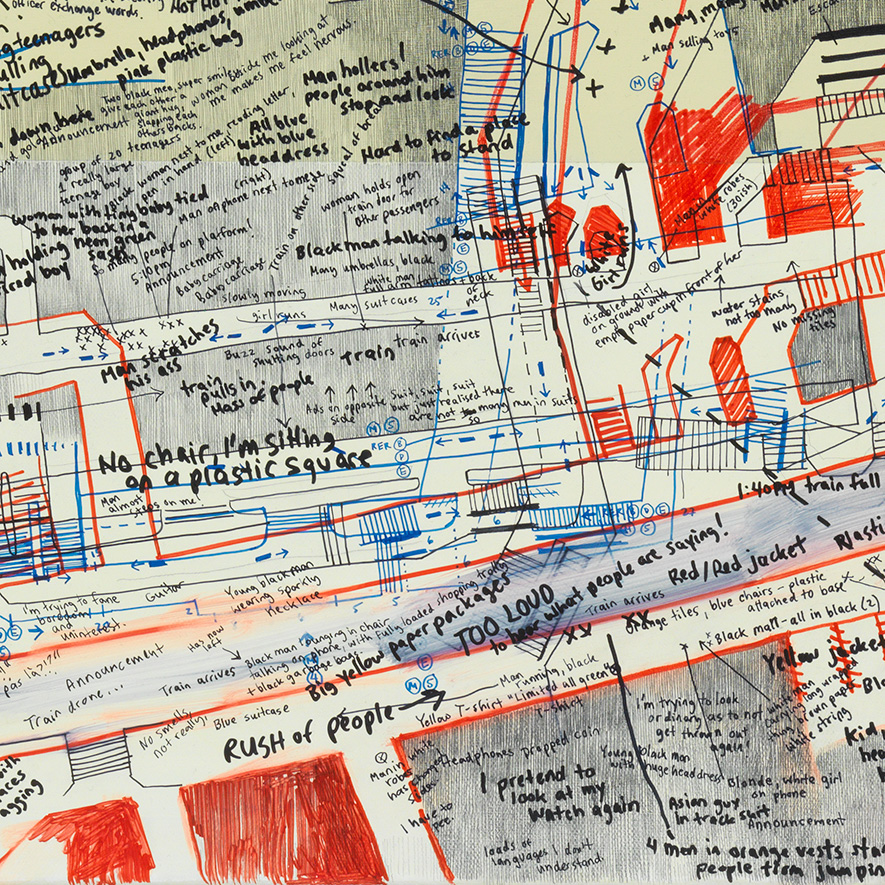 officer exchange words.
HOT HOT
teenagers
umbrella headphones,
pink plastic bag
Man hollers!
people around him
stop and look
Two black men, super smiley
give each other
giant hug
slapping each
others backs.
woman
beside me looking at
me makes me feel nervous.
Announcement
All blue
with blue
headdress
Hard to find a place
to stand
Many, many
Man selling toys
M 5
RER B
group of 20 teenagers.
1 really large
teenage boy
Black woman next to me reading letter,
pen in hand (left)
(right)
Man on phone next to me
squeal of brea
Train on other side
woman holds open
train door for
other passengers
woman with tiny baby tied
to her back in a
neon green
sash
holding
tired boy
So many people on platform!
5:10pm
Announcement
Baby carriage
Baby carriage
slowly moving
girl runs
Black man talking to himself
Many umbrellas black
white man
full arm tattoos + back
of
neck
Many suitcases
25
Man in
white robes
(30ish)
white
Girl runs
disabled girl
on ground with
empty paper cup in front of her
water stains
not too many
No missing
tiles
Man stretches
his ass
Buzz sound of
shutting doors
Train
train arrives
train
pulls in.
Mass of people
Ads on opposite
side
suit, suit, suit
but just realised there
are not so many men in suits
M 5
RER B
D
E
No chair, I'm sitting
on a plastic square
Man
almost
steps on me!
6
6
RER B D E
M 5
27
1:40pm train full
I'm trying to fane
boredom
and
uninterest.
Guitar
Young black man
wearing sparkly
necklace
2
5
5
TOO LOUD
to hear what people are saying!
Red/Red jacket
Plasti
Train arrives
orange tiles, blue chairs - plastic
attached to base
Black man - all in black (2)
pas là?!?!
Announcement
Train drone...
Hat now
left
Train arrives
Black man lounging in chair
talking on phone, with fully loaded shopping trolly
+ black garbage bags.
Big yellow paper packages
E
M 5
Man running, black
T-shirt
"Limited all green"
Yellow T-shirt
Blue suitcase
No smells,
not really!
RUSH of people
Yellow jacket
white man
carrying long wrapped
thing brown paper
white string
I'm trying to look
ordinary as to not
get thrown out
again!
Man in white
robes
has
Headphones
Dropped coin
I pretend to
look at my
watch again
Young black man
with huge headdress
Blonde, white girl
on phone
Asian guy
in track suit
Announcement
I have to
pee!
loads of
languages I don't
understand.
4 men in orange vests
people from jumpin
Kid